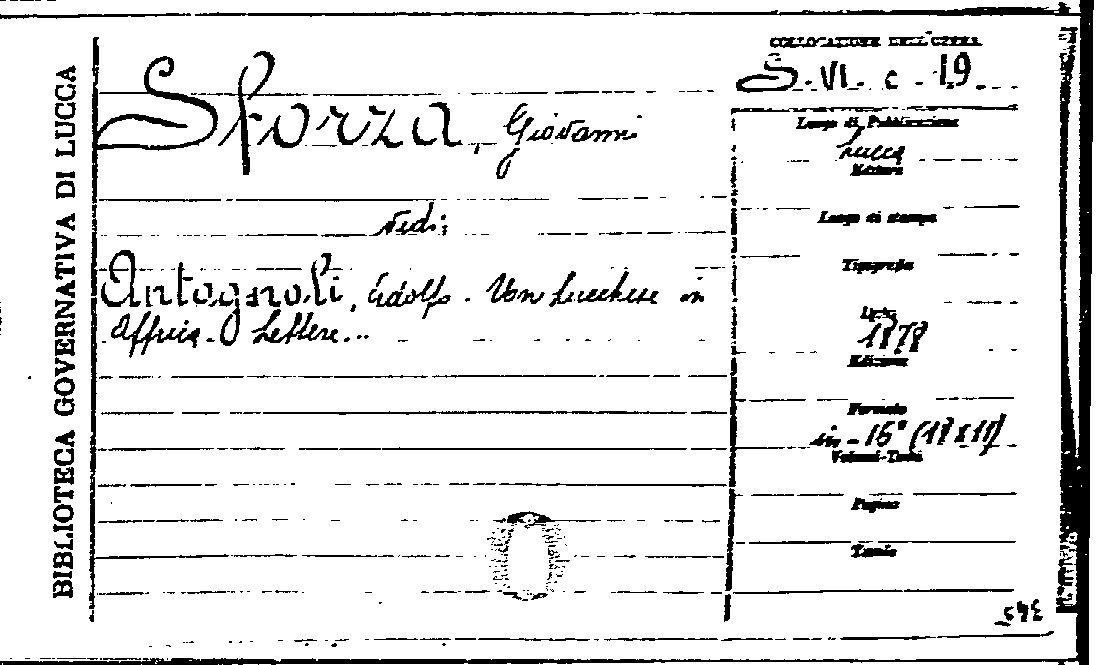 BIBLIOTECA GOVERNATIVA DI LUCCA
Sforza, Giovanni
vedi:
Antognoli, Adolfo. Un Lucchese in
Affrica. Lettere...
COLLOCAZIONE DELL'OPERA
S. VI. c. 19.
Luogo di Pubblicazione
Lucca
Editore
Luogo di stampa
Tipografia
1878
Edizione
Formato
in-16° (18x11)
Volumi-Tomi
Pagine
Tavole